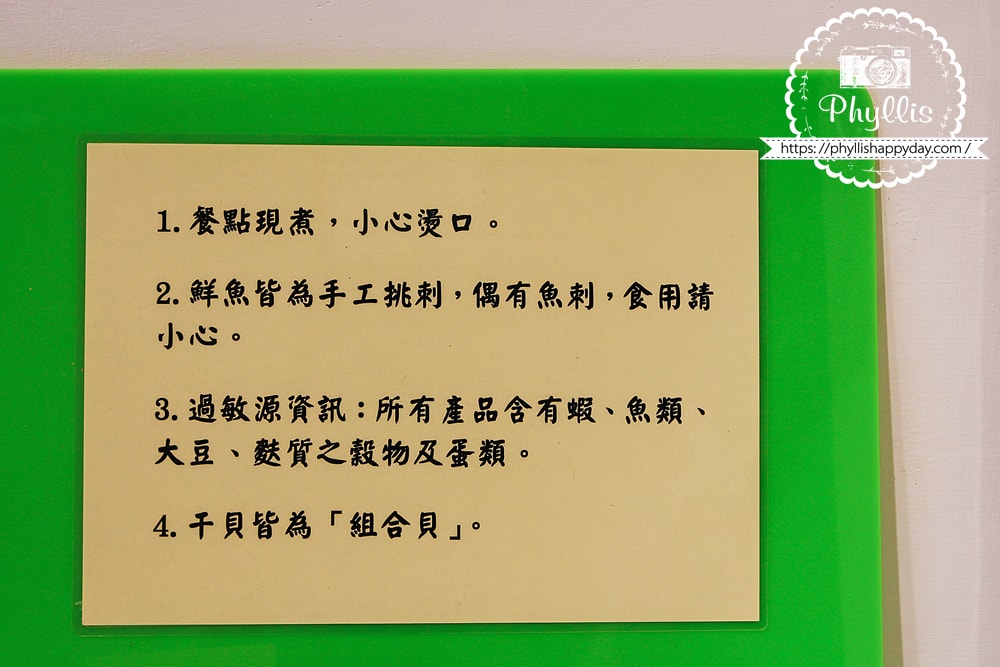 Phyllis
https://phyllishappyday.com/
1.餐點現煮，小心燙口。
2.鮮魚皆為手工挑刺，偶有魚刺，食用請
小心。
3.過敏源資訊：所有產品含有蝦、魚類、
大豆、麩質之穀物及蛋類。
4.干貝皆為「組合貝」。